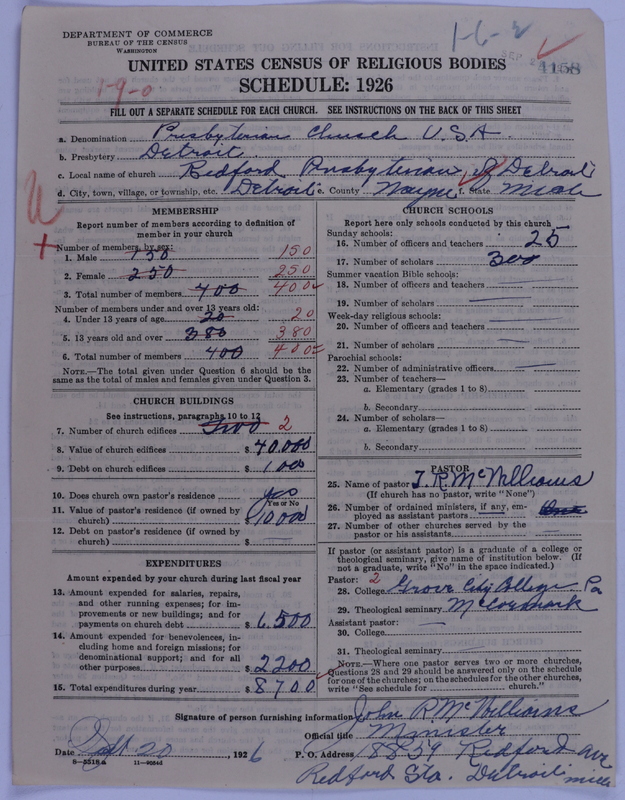 DEPARTMENT OF COMMERCE
BUREAU OF THE CENSUS
WASHINGTON
1-6-2
SEP
4158
UNITED STATES CENSUS OF RELIGIOUS BODIES
SCHEDULE: 1926
1-9-0
FILL OUT A SEPARATE SCHEDULE FOR EACH CHURCH. SEE INSTRUCTIONS ON THE BACK OF THIS SHEET
a. Denomination Presbyterian Church U.S.A.
b. Presbytery Detroit
c. Local name of church Redford Presbyterian, of Detroit
d. City, town, village, or township, etc. Detroit e. County Wayne f. State Mich
MEMBERSHIP
Report number of members according to definition of
member in your church
Number of members, by sex:
1. Male 150 150
2. Female 250 250
3. Total number of members 400 400
Number of members under and over 13 years old:
4. Under 13 years of age 20 20
5. 13 years old and over 380 380
6. Total number of members 400 400
NOTE.—The total given under Question 6 should be
the same as the total of males and females given under Question 3.
CHURCH BUILDINGS
See instructions, paragraphs 10 to 12
7. Number of church edifices Two 2
8. Value of church edifices $ 40,000
9. Debt on church edifices $ 1000
10. Does church own pastor's residence yes
Yes or No
11. Value of pastor's residence (if owned by
church) $ 10000
12. Debt on pastor's residence (if owned by
church) $
EXPENDITURES
Amount expended by your church during last fiscal year
13. Amount expended for salaries, repairs,
and other running expenses; for im-
provements or new buildings; and for
payments on church debt $ 6,500
14. Amount expended for benevolences, in-
cluding home and foreign missions; for
denominational support; and for all
other purposes $ 2200
15. Total expenditures during year $ 8700
CHURCH SCHOOLS
Report here only schools conducted by this church
Sunday schools:
16. Number of officers and teachers 25
17. Number of scholars 300
Summer vacation Bible schools:
18. Number of officers and teachers
19. Number of scholars
Week-day religious schools:
20. Number of officers and teachers
21. Number of scholars
Parochial schools:
22. Number of administrative officers
23. Number of teachers—
a. Elementary (grades 1 to 8)
b. Secondary
24. Number of scholars—
a. Elementary (grades 1 to 8)
b. Secondary
PASTOR
25. Name of pastor J. R. McWilliams
(If church has no pastor, write "None")
26. Number of ordained ministers, if any, em-
ployed as assistant pastors
27. Number of other churches served by the
pastor or his assistants
If pastor (or assistant pastor) is a graduate of a college or
theological seminary, give name of institution below. (If
not a graduate, write "No" in the space indicated.)
Pastor: 2
28. College Grove City College Pa
29. Theological seminary McCormack
Assistant pastor:
30. College
31. Theological seminary
NOTE.—Where one pastor serves two or more churches,
Questions 28 and 29 should be answered only on the schedule
for one of the churches; on the schedules for the other churches,
write "See schedule for church."
Signature of person furnishing information John R McWilliams
Official title Minister
Date Sept 20, 1926 P. O. Address 18859 Redford Ave
8—5518a 11—90545
Redford Sta. Detroit Mich